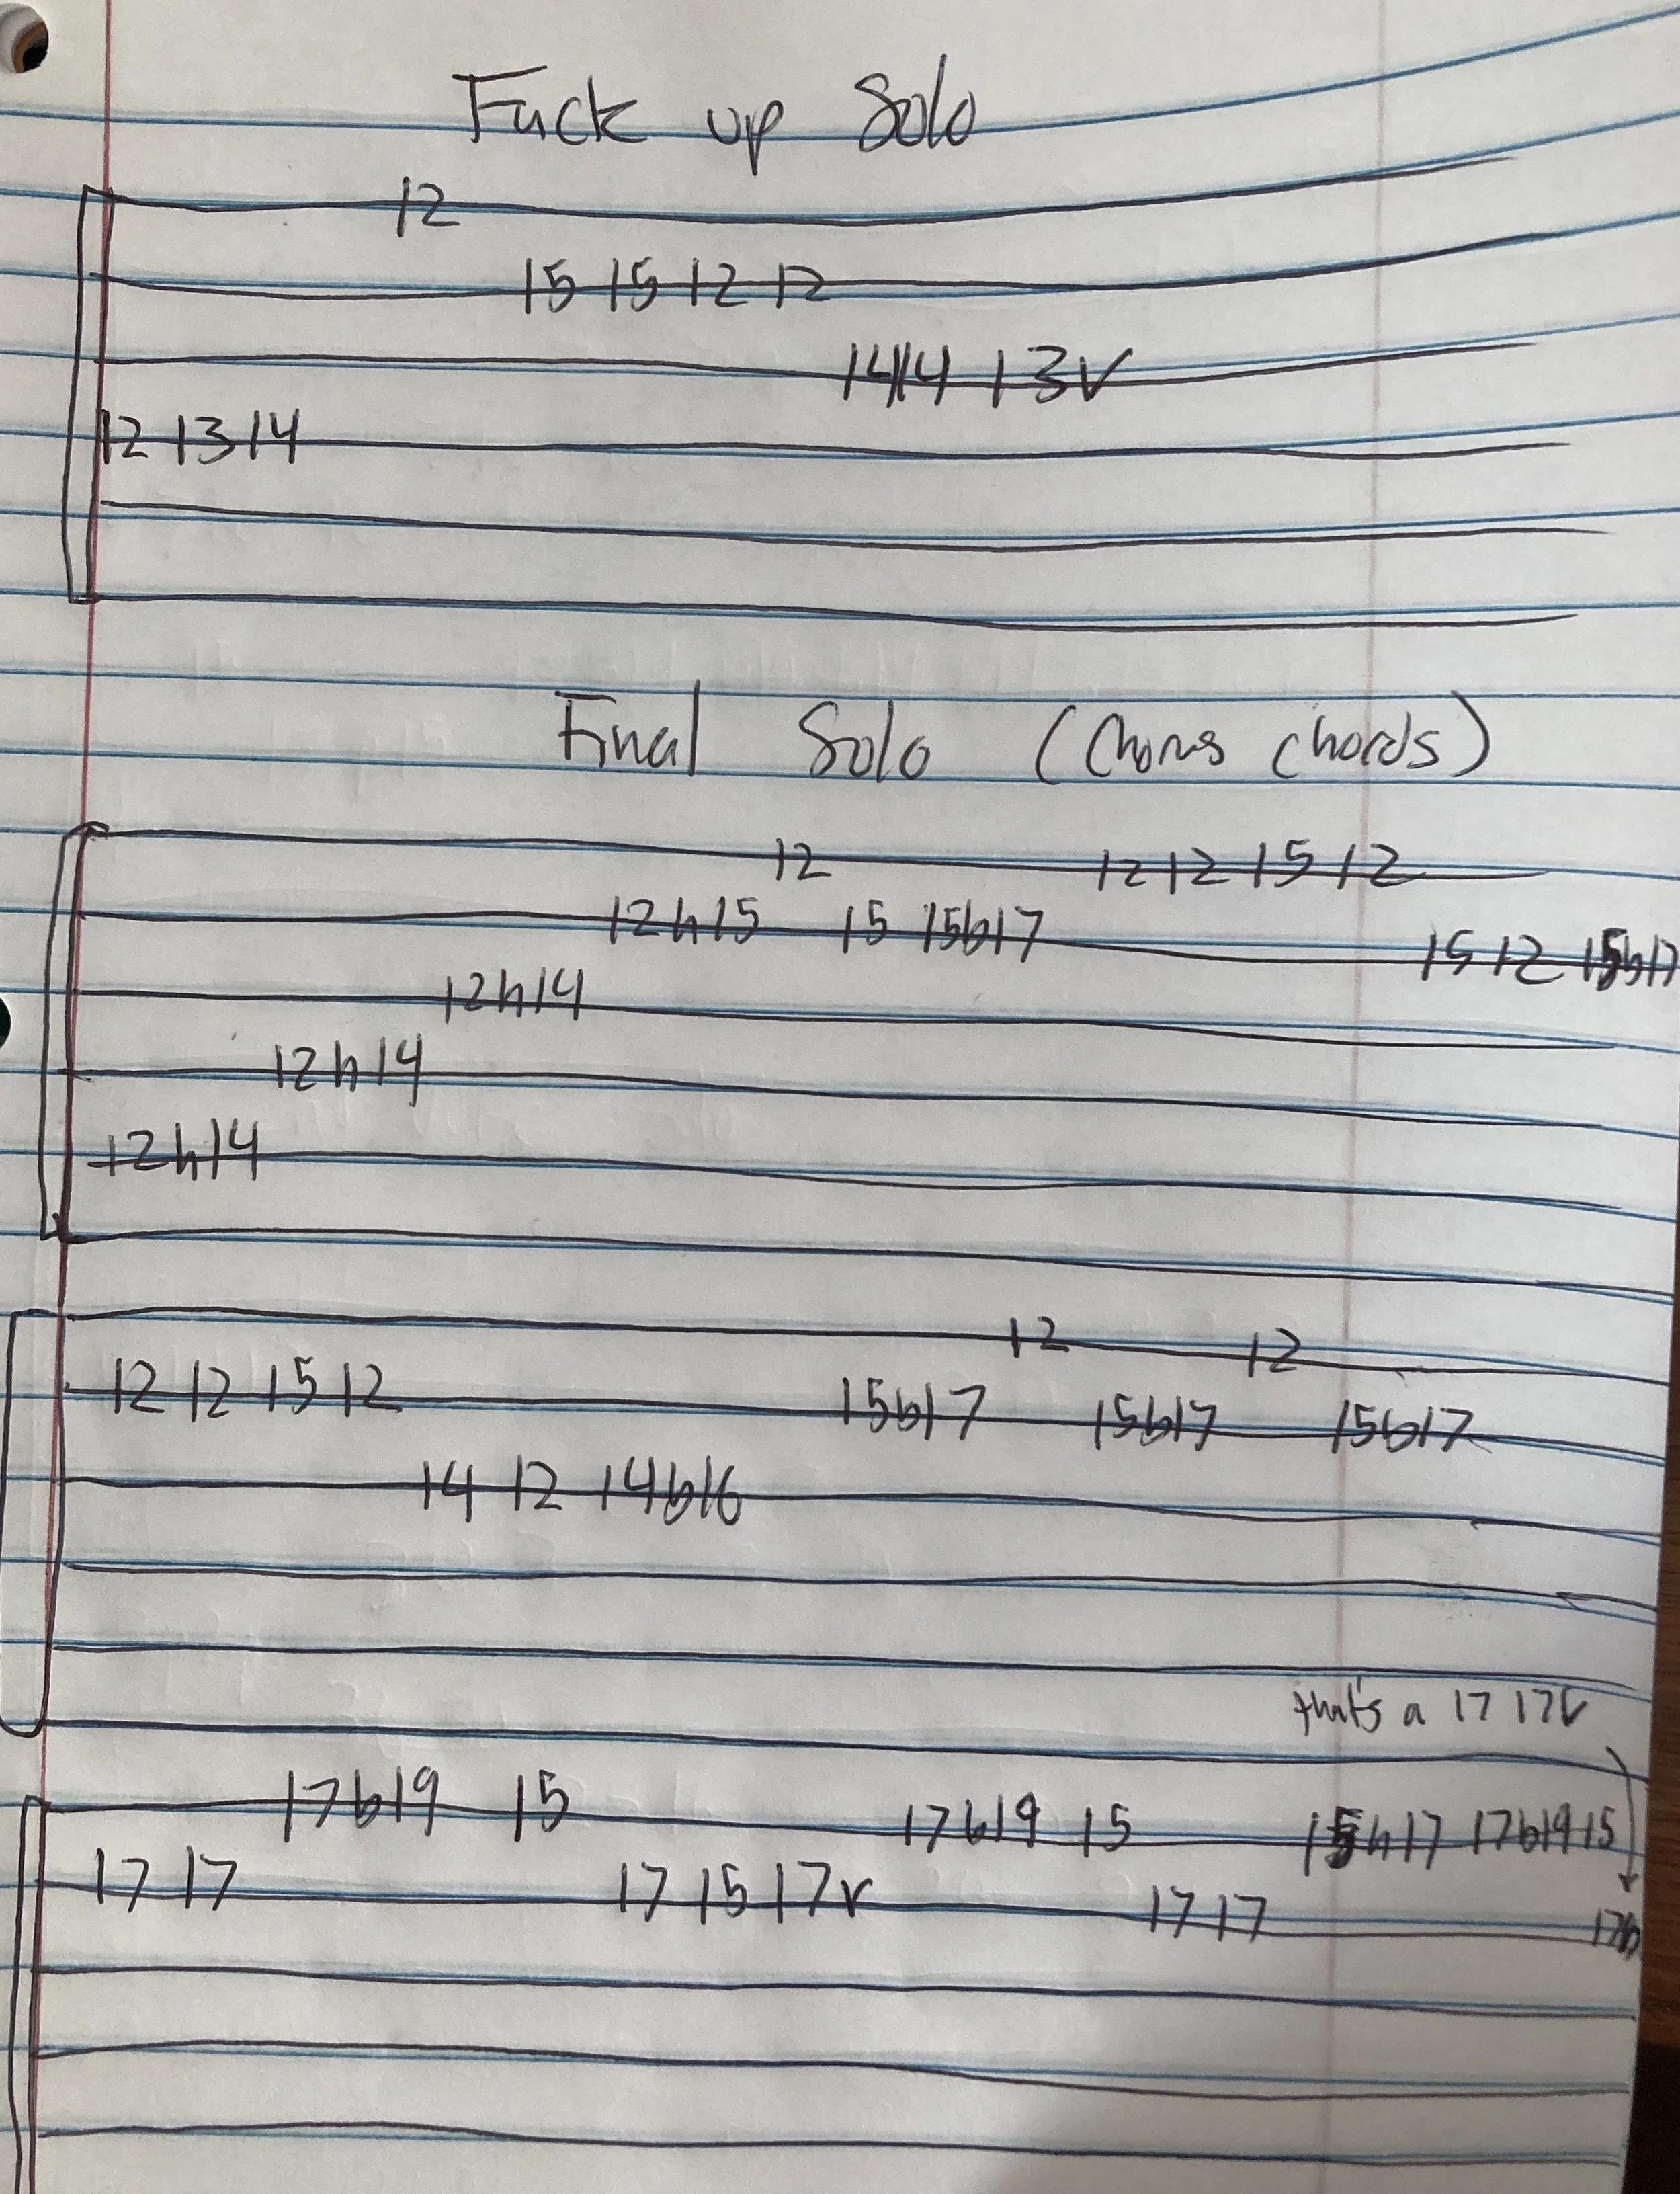 Fuck up Solo
12
15 15 12 12
14 14 13V
12 13 14
Final Solo (Chorus chords)
12 12 12 15 12
12h15 15 15b17 15 12 15b17
12h14
12h14
12h14
12 12
12 12 15 12 15b17 15b17 15b17
14 12 14b16
that's a 17 17V
17b19 15 17b19 15 15h17 17b19 15
17 17 17 15 17V 17 17